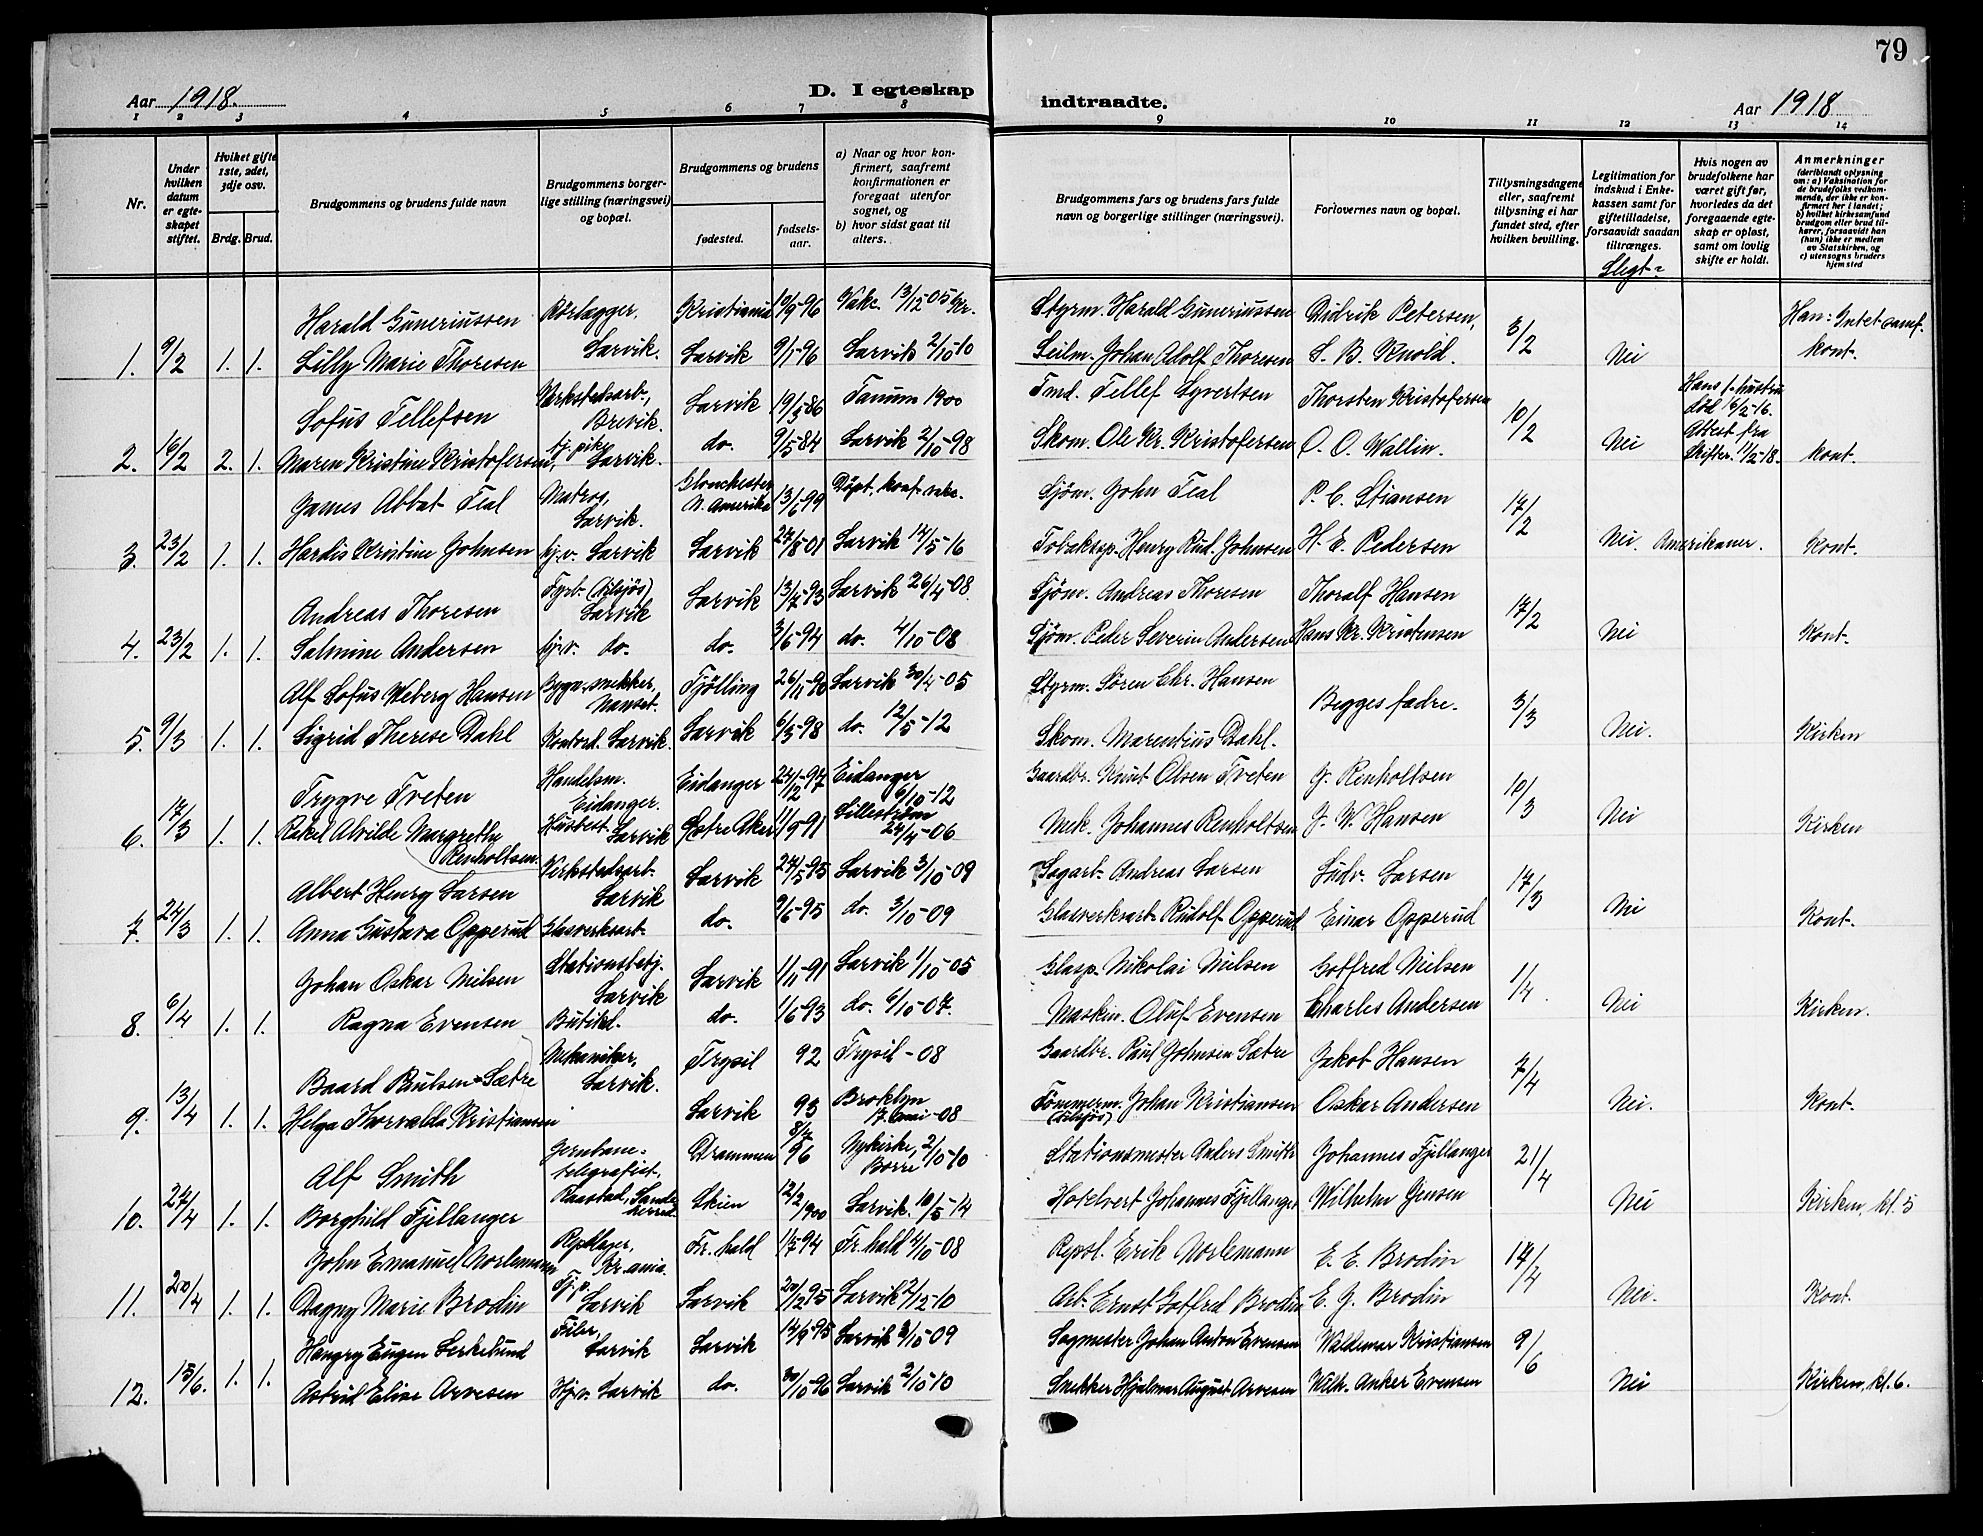 79
Aar 1918. D. I egteskap indtraadte. Aar 1918
1 2 3 4 5 6 7 8 9 10 11 12 13 14
Nr.
Under hvilken datum er egteskapet stiftet.
Hvilket gifte 1ste, 2det, 3dje osv.
Brdg. Brud.
Brudgommens og brudens fulde navn
Brudgommens borgerlige stilling (næringsvei) og bopæl.
Brudgommens og brudens
fødested.
fødselsaar.
a) Naar og hvor konfirmert, saafremt konfirmationen er foregaat utenfor sognet, og
b) hvor sidst gaat til alters.
Brudgommens fars og brudens fars fulde navn og borgerlige stillinger (næringsvei).
Forlovernes navn og bopæl.
Tillysningsdagene eller, saafremt tillysning ei har fundet sted, efter hvilken bevilling.
Legitimation for indskud i Enkekassen samt for giftetilladelse, forsaavidt saadan tiltrænges.
Slegt?
Hvis nogen av brudefolkene har været gift før, hvorledes da det foregaaende egteskap er opløst, samt om lovlig skifte er holdt.
Anmerkninger (deriblandt oplysning om: a) Vaksination for de brudefolks vedkommende, der ikke er konfirmert her i landet; b) hvilket kirkesamfund brudgom eller brud tilhører, forsaavidt han (hun) ikke er medlem av Statskirken, og c) utensogns bruders hjemsted
Harald Guneriussen Rörlægger, Larvik. Kristiania 10/9-96 Vakc. 13/12-05 Kr. Styrm. Harald Guneriussen Didrik Petersen, 3/2 Han: Intet samf.
1. 9/2 1. 1. Lilly Marie Thoresen Larvik 9/1-96 Larvik 2/10-10 Seilm. Johan Adolf Thoresen S. B. Knold. Nei kont.
Sofus Tellefsen Verkstedsarb., Brevik. Larvik 19/3-86 Tanum 1900 Fmd. Tellef Syvertsen Thorsten Kristofersen 10/2 Hans f. hustru död 16/2-16. Attest fra Skifter. 11/2-18.
2. 16/2 2. 1. Maren Kristine Kristofersen, tj. pike, Larvik. do. 9/5-84 Larvik 2/10-98 Skom. Ole Kr. Kristofersen O. O. Wallin. Nei kont.
James Abbot Teal Matros, Larvik. Glouchester N. Amerika 13/6-99 Döpt, konf. vakc. Sjöm. John Teal P. C. Stiansen 17/2
3. 23/2 1. 1. Hardis Kristine Johnsen hj.v. Larvik Larvik 27/8-01 Larvik 14/5-16 Tobaksp. Henry Rud. Johnsen H. E. Pedersen Nei. Amerikaner. Kont.
Andreas Thoresen Fyrb. (tilsjös) Larvik Larvik 13/7-93 Larvik 26/4-08. Sjöm. Andreas Thoresen Thoralf Hansen 17/2
4. 23/2 1. 1. Salmine Andersen hj.v. do. do. 3/6-94 do. 4/10-08 Sjöm. Peder Severin Andersen Hans Kr. Kristensen Nei Kont.
Alf Sofus Weberg Hansen Bygn. snekker, Nanset. Tjölling 26/11-90 Larvik 30/4-05 Styrm. Sören Chr. Hansen Begges fædre. 3/3
5. 9/3 1. 1. Sigrid Therese Dahl Kontord. Larvik. Larvik 6/3-98 do. 12/5-12 Skom. Marentius Dahl. Nei. Kirken
Trygve Tveten Handelsm. Eidanger. Eidanger 24/12-97 Eidanger 6/10-12 Gaardbr. Knut Olsen Tveten J. Renholtsen 10/3
6. 17/3 1. 1. Rakel Alvilde Margrethe Renholtsen. Husbest. Larvik Sætre Aker 11/9-91 Lilleström 24/4-06 Mek. Johannes Renholtsen J. W. Hansen Nei Kirken
Albert Henry Larsen Verkstedsarb. Larvik Larvik 24/5-95 Larvik 3/10-09 Sagarb. Andreas Larsen Ludv. Larsen 17/3
7. 24/3 1. 1. Anna Gustava Opperud Glasverksarb. do. 9/6-95 do. 3/10-09 Glasverksarb. Rudolf Opperud Einar Opperud Nei Kont.
Johan Oskar Nielsen Stationsbetj. Larvik Larvik 1/11-91 Larvik 1/10-05 Glasp. Nikolai Nielsen Gotfred Nielsen 1/4.
8. 6/4 1. 1. Ragna Evensen Butikd. do. 1/6-93 do. 6/10-07. Maskin. Oluf Evensen Charles Andersen Nei Kirken.
Baard Paulsen Sætre Mekaniker, Larvik. Trysil 92 Trysil -08 Gaardbr. Paul Johnsen Sætre Jakob Hansen 7/4
9. 13/4 1. 1. Helga Thorvalda Kristiansen Larvik 93 Broklyn 17. mai -08 Tömmerm. (tilsjös) Johan Kristiansen Oskar Andersen Nei. Kont.
Alf Smith Jernbanetelegrafist, Raastad, Sandeherred. Drammen 8/7 96 Nykirke, Borre 2/10-10 Stationsmester Anders Smith Johannes Fjellanger 21/4
10. 27/4 1. 1. Borghild Fjellanger Skien 12/2 1900 Larvik. 10/5-14 Hotelvert Johannes Fjellanger Wilhelm Jensen Nei Kirken, kl. 5
John Emanuel Norlemann Repslager, Kr.ania. Fr.hald 11/7-94 Fr.hald 4/10-08 Repsl. Erik Norlemann E. E. Brodin 14/4
11. 20/4 1. 1. Dagny Marie Brodin Tj.p. Larvik Larvik 20/12-95 Larvik 2/12-10 Arb. Ernst Gotfred Brodin E. J. Brodin Nei. Kont.
Hangry Eugen Lerkelund Filer, Larvik Larvik 14/9-95 Larvik 3/10-09 Sagmester Johan Anton Evensen Waldemar Kristiansen 9/6
12. 15/6. 1. 1. Astrid Elise Arvesen Hj.v. Larvik do. 30/10-96 Larvik 2/10-10 Snekker Hjalmar August Arvesen Wilh. Anker Evensen Nei Kirken, kl. 6.